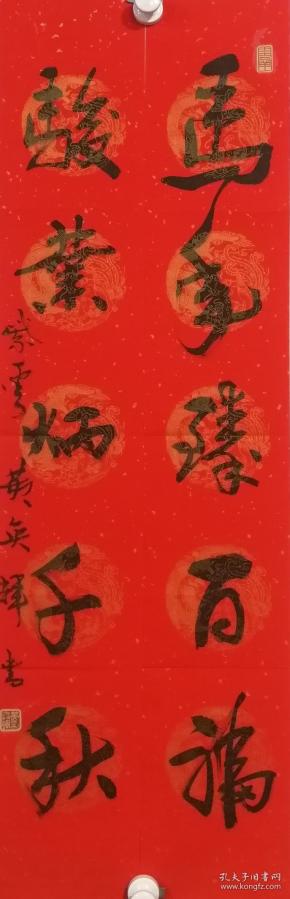 馬年臻百福
駿業炳千秋
紫雪黄奂輝書
孔夫子旧书网
www.kongfz.com